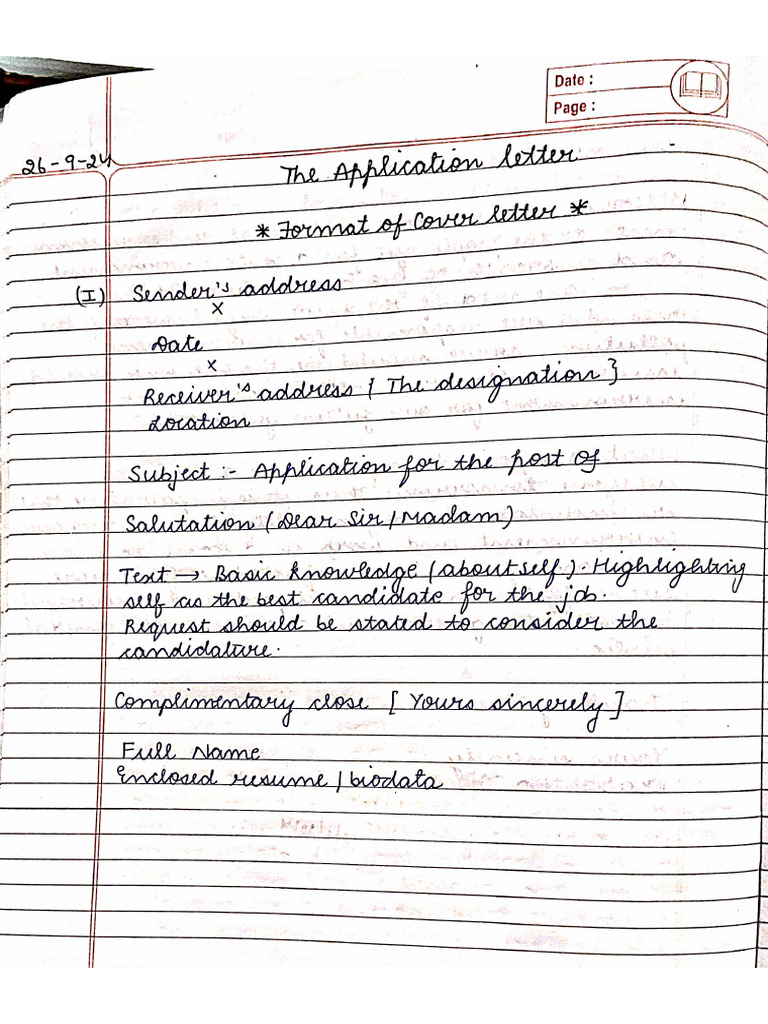 Date :
Page :
26-9-24
The Application letter
* Format of Cover letter *
(I) Sender's address
x
Date
x
Receiver's address [ The designation ]
Location
Subject :- Application for the post of
Salutation (Dear Sir/Madam)
Text → Basic knowledge (about self). Highlighting
self as the best candidate for the job.
Request should be stated to consider the
candidature.
Complimentary close [ Yours sincerely ]
Full Name
Enclosed resume / biodata